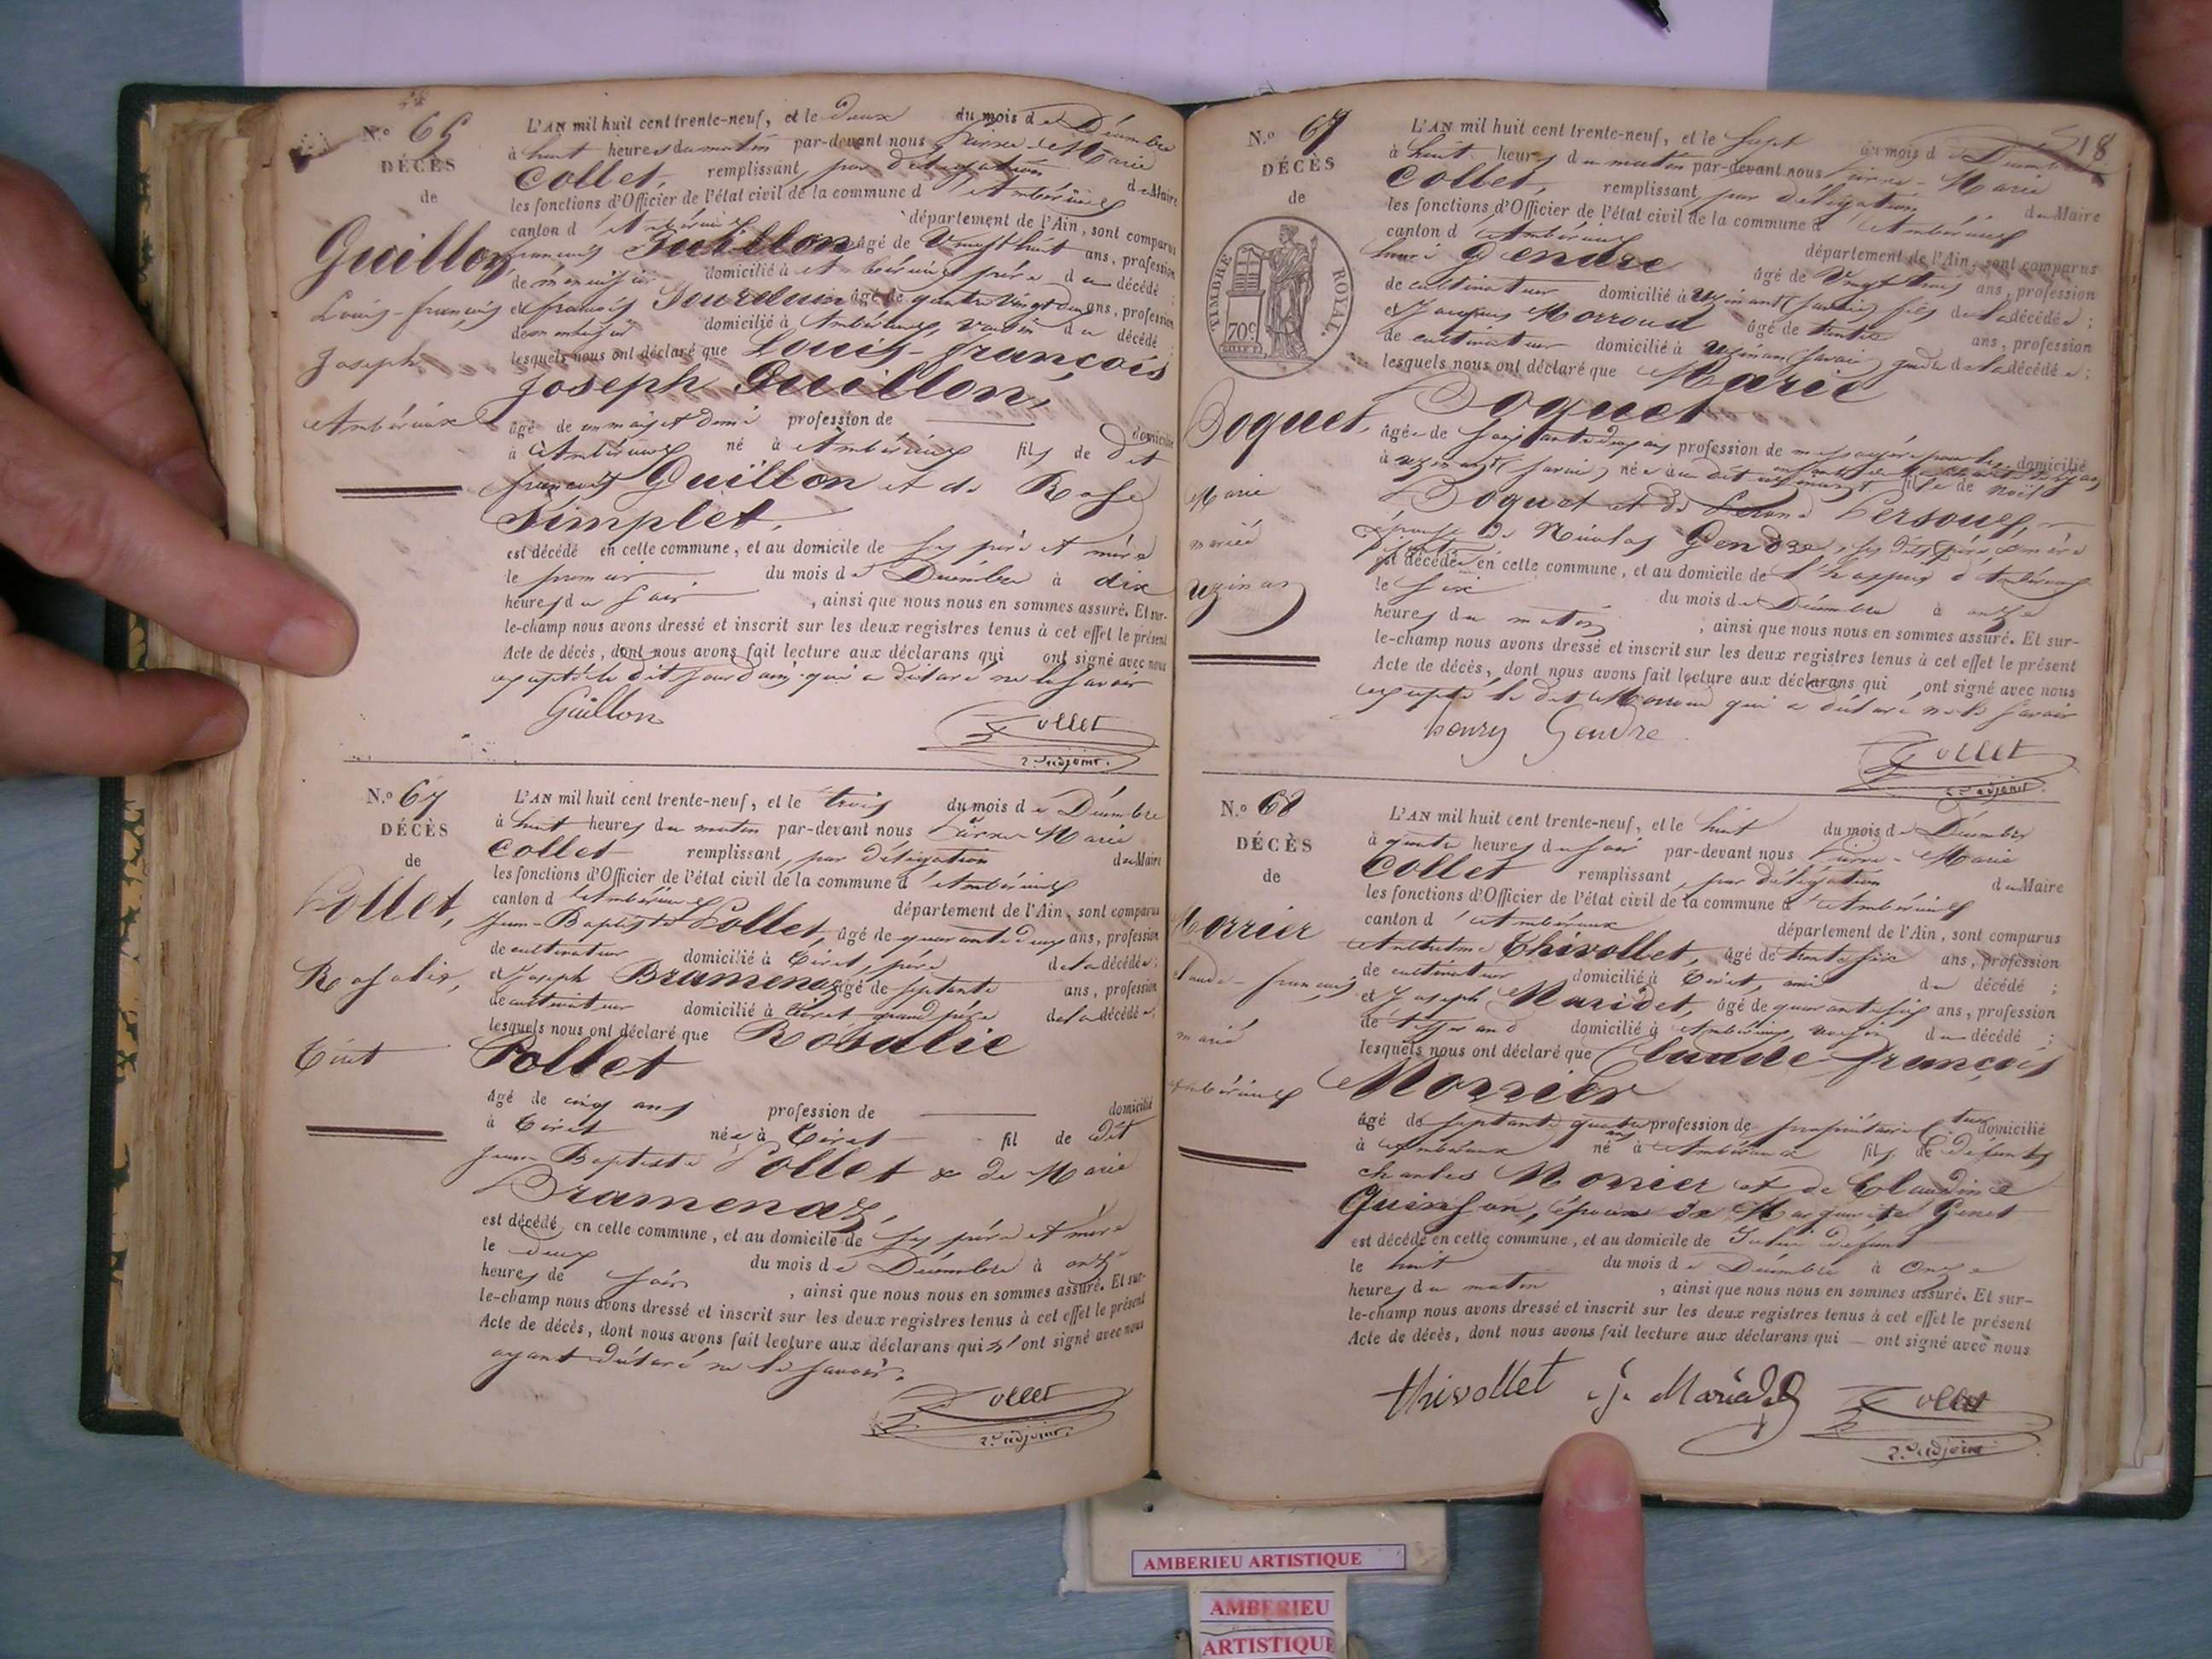 N.º 65
DÉCÈS
de
Guillon,
Louis-françois
Joseph
Ambérieux
L'AN mil huit cent trente-neuf, et le deux du mois de Décembre
à huit heures du matin par-devant nous Pierre-Marie
Collet, remplissant, par délégation du Maire
les fonctions d'Officier de l'état civil de la commune d'Ambérieux
canton d'Ambérieux département de l'Ain, sont comparus
françois Guillon âgé de Vingt huit ans, profession
de menuisier domicilié à Ambérieux père du décédé ;
et françois Jourdain âgé de quatre vingt deux ans, profession
de menuisier domicilié à Ambérieux, voisin du décédé ;
lesquels nous ont déclaré que Louis-françois
Joseph Guillon,
âgé de un mois et demi profession de domicilié
à Ambérieux né à Ambérieux fils de Dit
françois Guillon et de Rose
Simplet,
est décédé en cette commune, et au domicile de ses père et mère
le premier du mois de Décembre à dix
heures du soir, ainsi que nous nous en sommes assuré. Et sur-
le-champ nous avons dressé et inscrit sur les deux registres tenus à cet effet le présent
Acte de décès, dont nous avons fait lecture aux déclarans qui ont signé avec nous
excepté le dit Jourdain qui a déclaré ne le savoir
Guillon
Collet
2.e adjoint.
N.º 67
DÉCÈS
de
Pollet,
Rosalie,
Tiret
L'AN mil huit cent trente-neuf, et le trois du mois de Décembre
à huit heures du matin par-devant nous Pierre-Marie
Collet remplissant, par délégation du Maire
les fonctions d'Officier de l'état civil de la commune d'Ambérieux
canton d'Ambérieux département de l'Ain, sont comparus
Jean-Baptiste Pollet, âgé de quarante deux ans, profession
de cultivateur domicilié à Tiret, père de la décédée ;
et Joseph Bramenaz âgé de septante ans, profession
de cultivateur domicilié à Tiret grand père de la décédée ;
lesquels nous ont déclaré que Rosalie
Pollet
âgé de cinq ans profession de domicilié
à Tiret née à Tiret fil de Dit
Jean Baptiste Pollet & de Marie
Bramenaz,
est décédé en cette commune, et au domicile de ses père et mère
le deux du mois de Décembre à onze
heures de soir, ainsi que nous nous en sommes assuré. Et sur-
le-champ nous avons dressé et inscrit sur les deux registres tenus à cet effet le présent
Acte de décès, dont nous avons fait lecture aux déclarans qui n'ont signé avec nous
ayant déclaré ne le savoir.
Collet
2.e adjoint.
18
N.º 67
DÉCÈS
de
TIMBRE ROYAL.
70c
Boquet,
Marie
mariée
Uginas
L'AN mil huit cent trente-neuf, et le sept du mois de Décembre
à huit heures du matin par-devant nous Pierre-Marie
Collet, remplissant, par délégation du Maire
les fonctions d'Officier de l'état civil de la commune d'Ambérieux
canton d'Ambérieux département de l'Ain, sont comparus
henri Gendre âgé de Vingt trois ans, profession
de cultivateur domicilié à Uginant (Savoie) fils de la décédée ;
et Jacques Morroud âgé de trente ans, profession
de cultivateur domicilié à Uginan (Savoie) gendre de la décédée ;
lesquels nous ont déclaré que Marie
Boquet
âgée de soixante deux ans profession de domicilié
à Uginant (Savoie) née au dit Uginant fille de Noël
Boquet et de
épouse de Nicolas Gendre,
est décédée en cette commune, et au domicile de l'
le six du mois de Décembre à onze
heures du matin, ainsi que nous nous en sommes assuré. Et sur-
le-champ nous avons dressé et inscrit sur les deux registres tenus à cet effet le présent
Acte de décès, dont nous avons fait lecture aux déclarans qui ont signé avec nous
excepté le dit Morroud qui a déclaré ne le savoir
henry Gendre
Collet
2.e adjoint.
N.º 68
DÉCÈS
de
Morrier
Claude-françois
marié
Ambérieux
L'AN mil huit cent trente-neuf, et le huit du mois de Décembre
à quatre heures du soir par-devant nous Pierre-Marie
Collet remplissant, par délégation du Maire
les fonctions d'Officier de l'état civil de la commune d'Ambérieux
canton d'Ambérieux département de l'Ain, sont comparus
Anthelme Thivollet, âgé de trente six ans, profession
de cultivateur domicilié à Tiret, ami du décédé ;
et Joseph Maridet, âgé de quarante six ans, profession
de tisserand domicilié à Ambérieux, voisin du décédé ;
lesquels nous ont déclaré que Claude françois
Morrier
âgé de septante quatre ans profession de propriétaire domicilié
à Ambérieux né à Ambérieux fils de défunts
Charles Morrier et de Claudine
Quinson, époux de Marguerite Genet
est décédé en cette commune, et au domicile de défunt
le huit du mois de Décembre à Onze
heures du matin, ainsi que nous nous en sommes assuré. Et sur-
le-champ nous avons dressé et inscrit sur les deux registres tenus à cet effet le présent
Acte de décès, dont nous avons fait lecture aux déclarans qui ont signé avec nous
thivollet J. Maridet Collet
2.e adjoint
AMBERIEU ARTISTIQUE
AMBERIEU
ARTISTIQUE